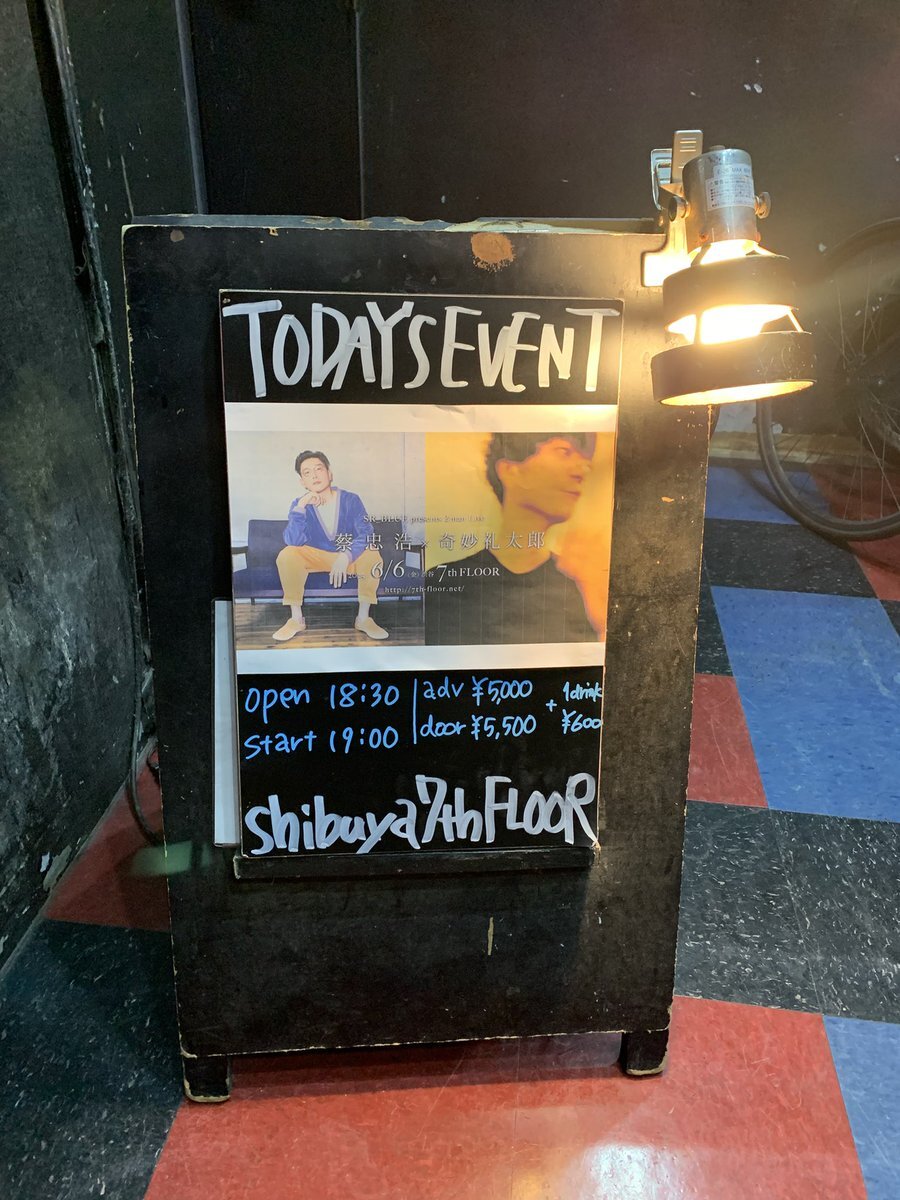 TODAY'S EVENT
SR_BLUE presents 2 man Live
蔡忠浩×奇妙礼太郎
6/6 (金) 渋谷 7th FLOOR
http://7th-floor.net/
open 18:30
start 19:00
adv ¥5,000
door ¥5,500
+ 1drink
¥600
shibuya 7th FLOOR